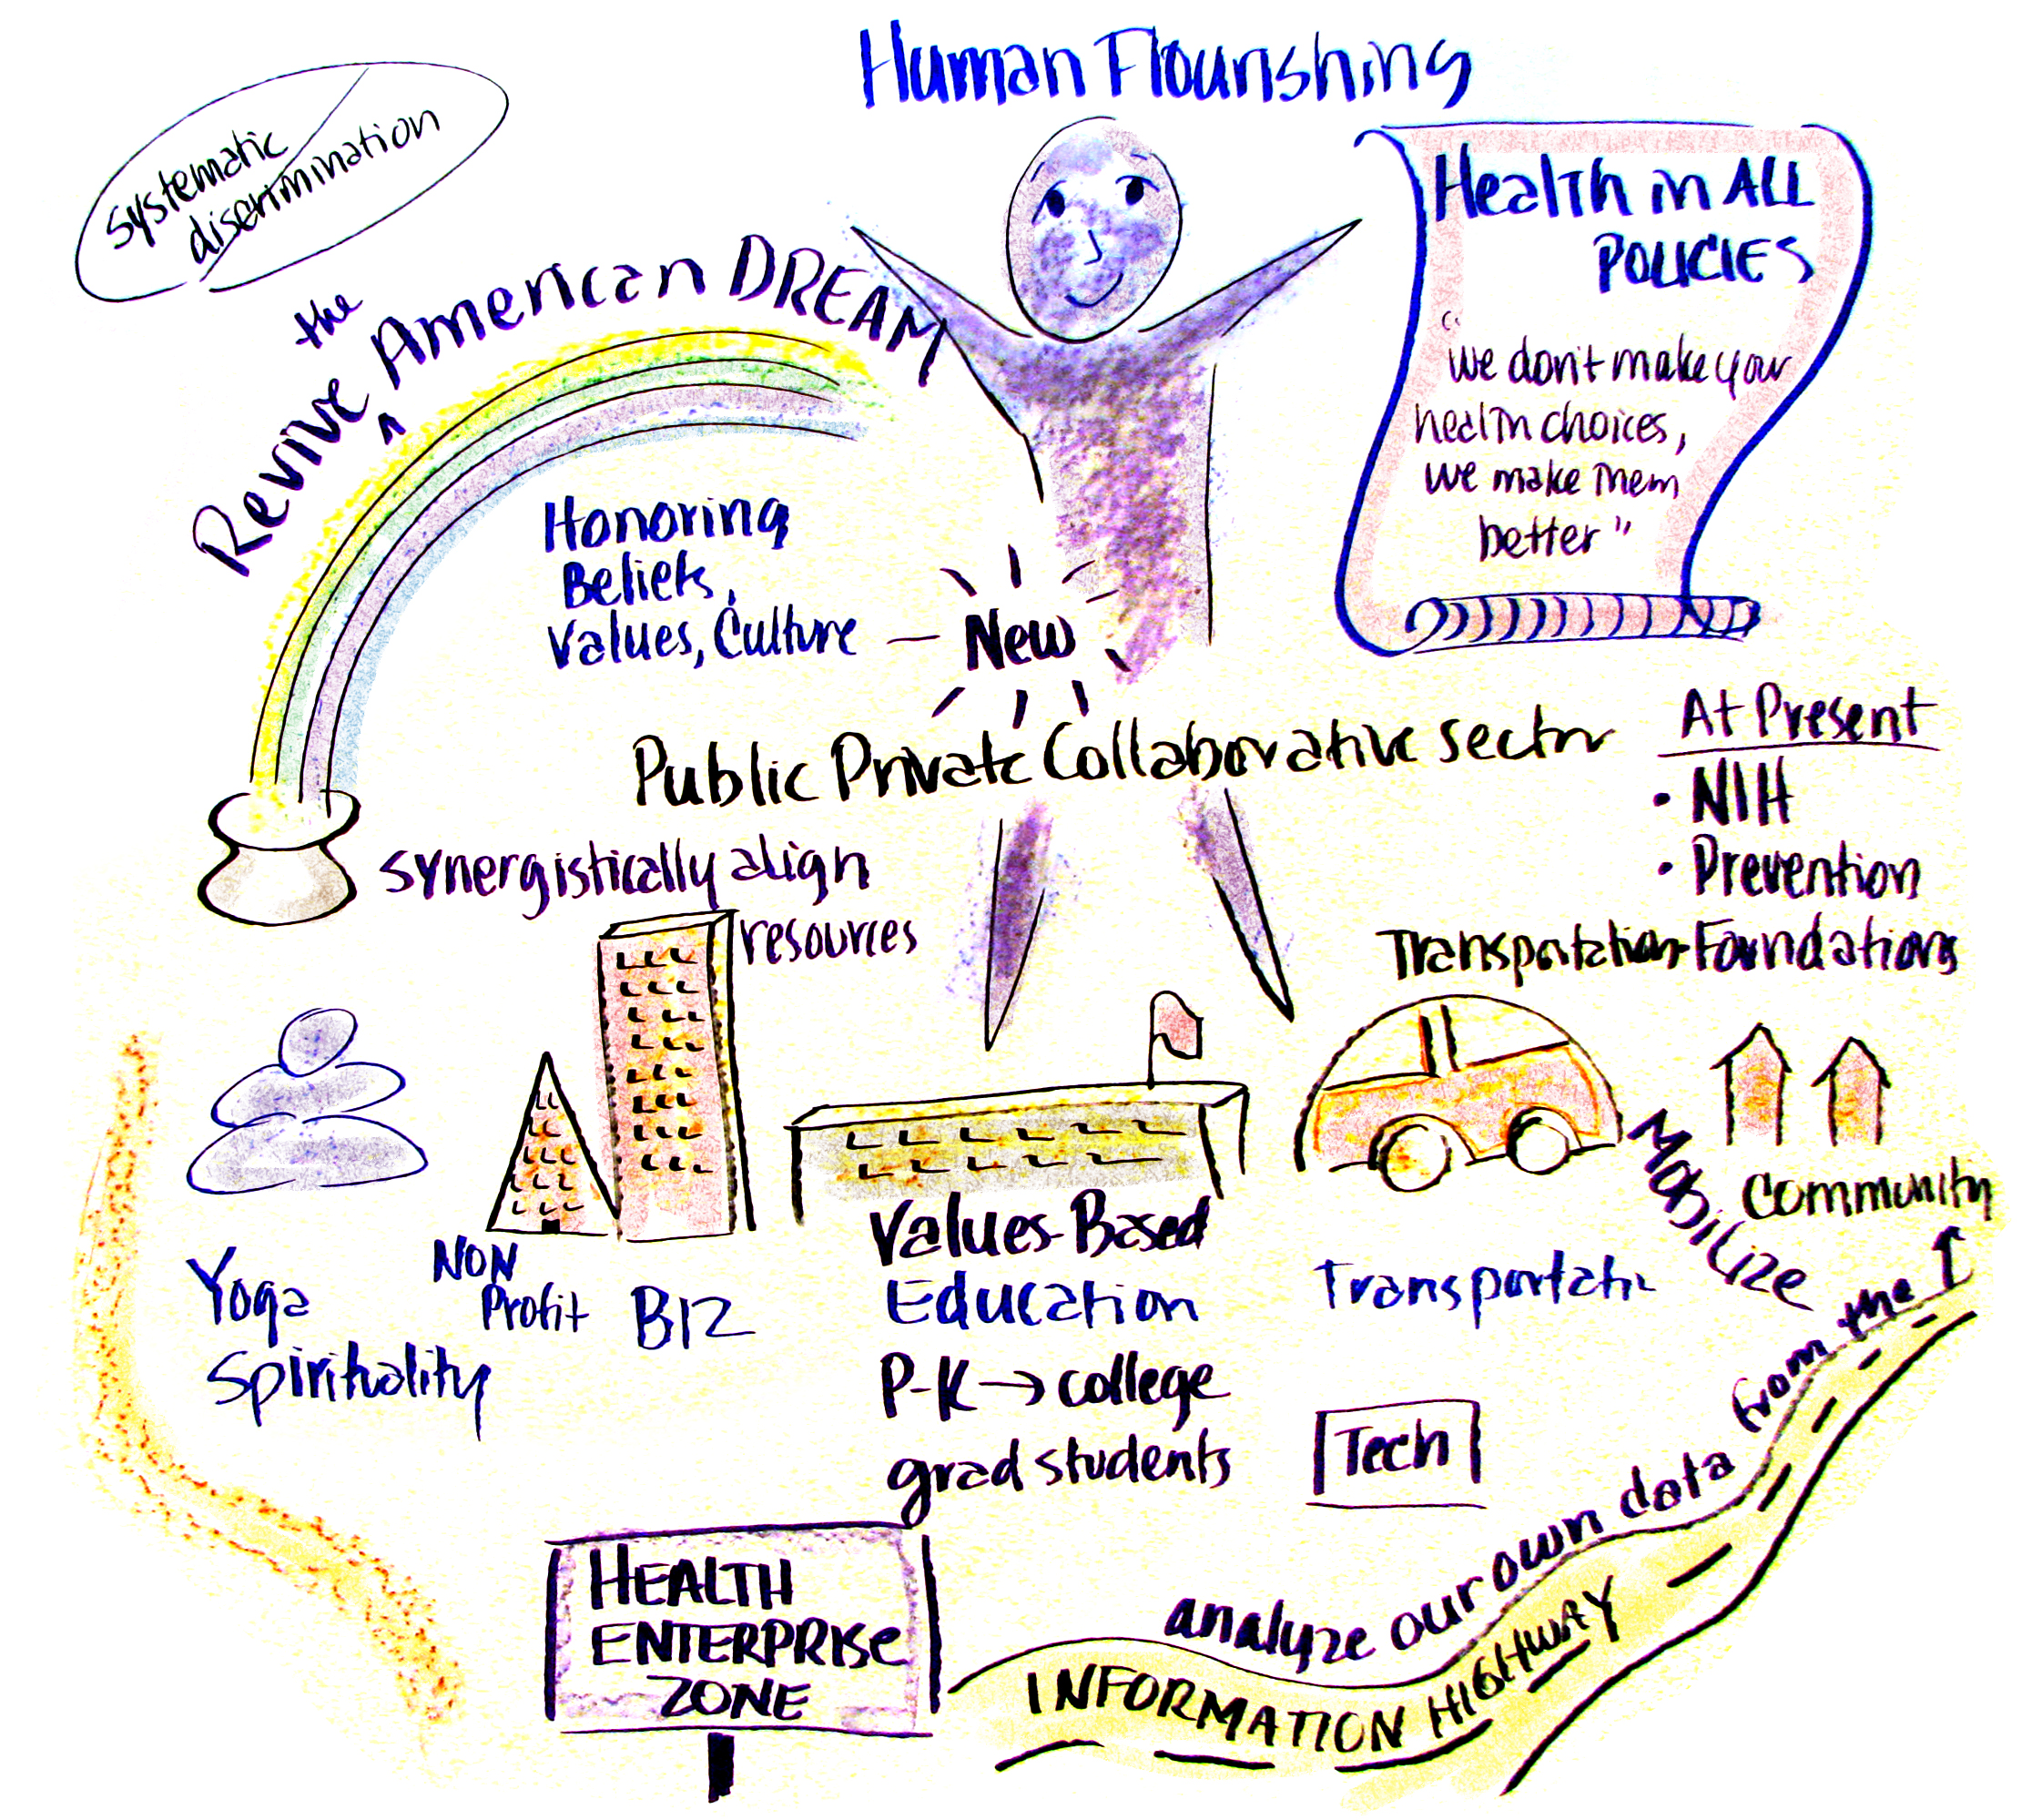 Human Flourishing
Systematic
discrimination
Revive the American DREAM
Health in ALL
POLICIES
"We don't make your
health choices,
we make them
better"
Honoring
Beliefs,
Values, Culture — New
Public Private Collaborative Sector
At Present
• NIH
• Prevention
Transportation-Foundations
synergistically align
resources
Yoga
Spirituality
NON
Profit
BIZ
Values-Based
Education
P-K → college
grad students
Transportatn
Mobilize
Community
Tech
HEALTH
ENTERPRISE
ZONE
analyze our own data from the
INFORMATION HIGHWAY